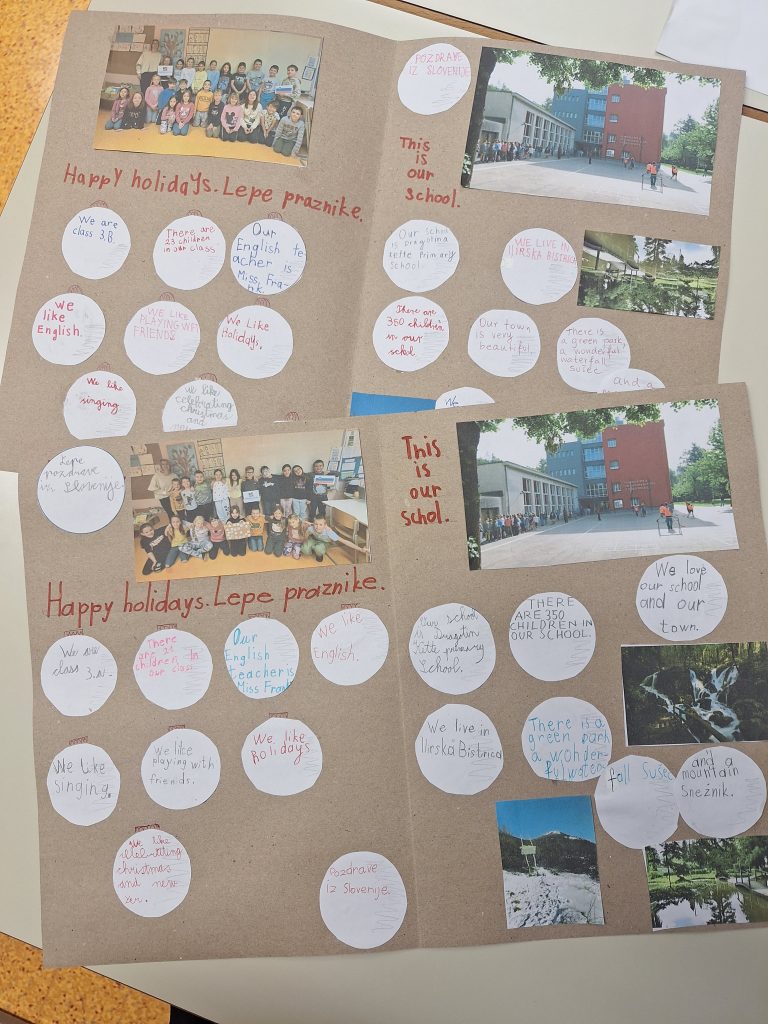 Happy holidays. Lepe praznike.
We are
class 3.B.
There are
23 children
in our class
Our
English te-
acher is
Miss Fra-
nk
We
like
English.
WE LIKE
PLAYING WITH
FRIENDS
We Like
Holidays.
We like
singing
We like
celebrating
christmas
and
POZDRAVE
IZ SLOVENIJE
This
is
our
school.
Our school
is
Kette Primary
school
WE LIVE IN
ILIRSKA BISTRICA
There are
350 children
in our
schol.
Our town
is very
beautiful.
There is
a green park,
a wonderful
waterfall
Sušec
and a
We
Lepe
pozdrave
iz Slovenije
Happy holidays. Lepe praznike.
We are
class 3.a.
There
are 21
children In
our class
Our
English
teacher is
Miss Frank
We like
English.
We like
Singing.
We like
playing with
friends.
We like
Holidays
christmas
and new
Pozdrave
iz Slovenije.
This
is
our
schol.
Our school
is Dragotin
Kette primary
School.
THERE
ARE 350
CHILDREN IN
OUR SCHOOL.
We love
our school
and our
town.
We live in
Ilirska Bistrica
There is a
green park
a wonder-
ful water-
fall Sušec
and a
mountain
Snežnik.